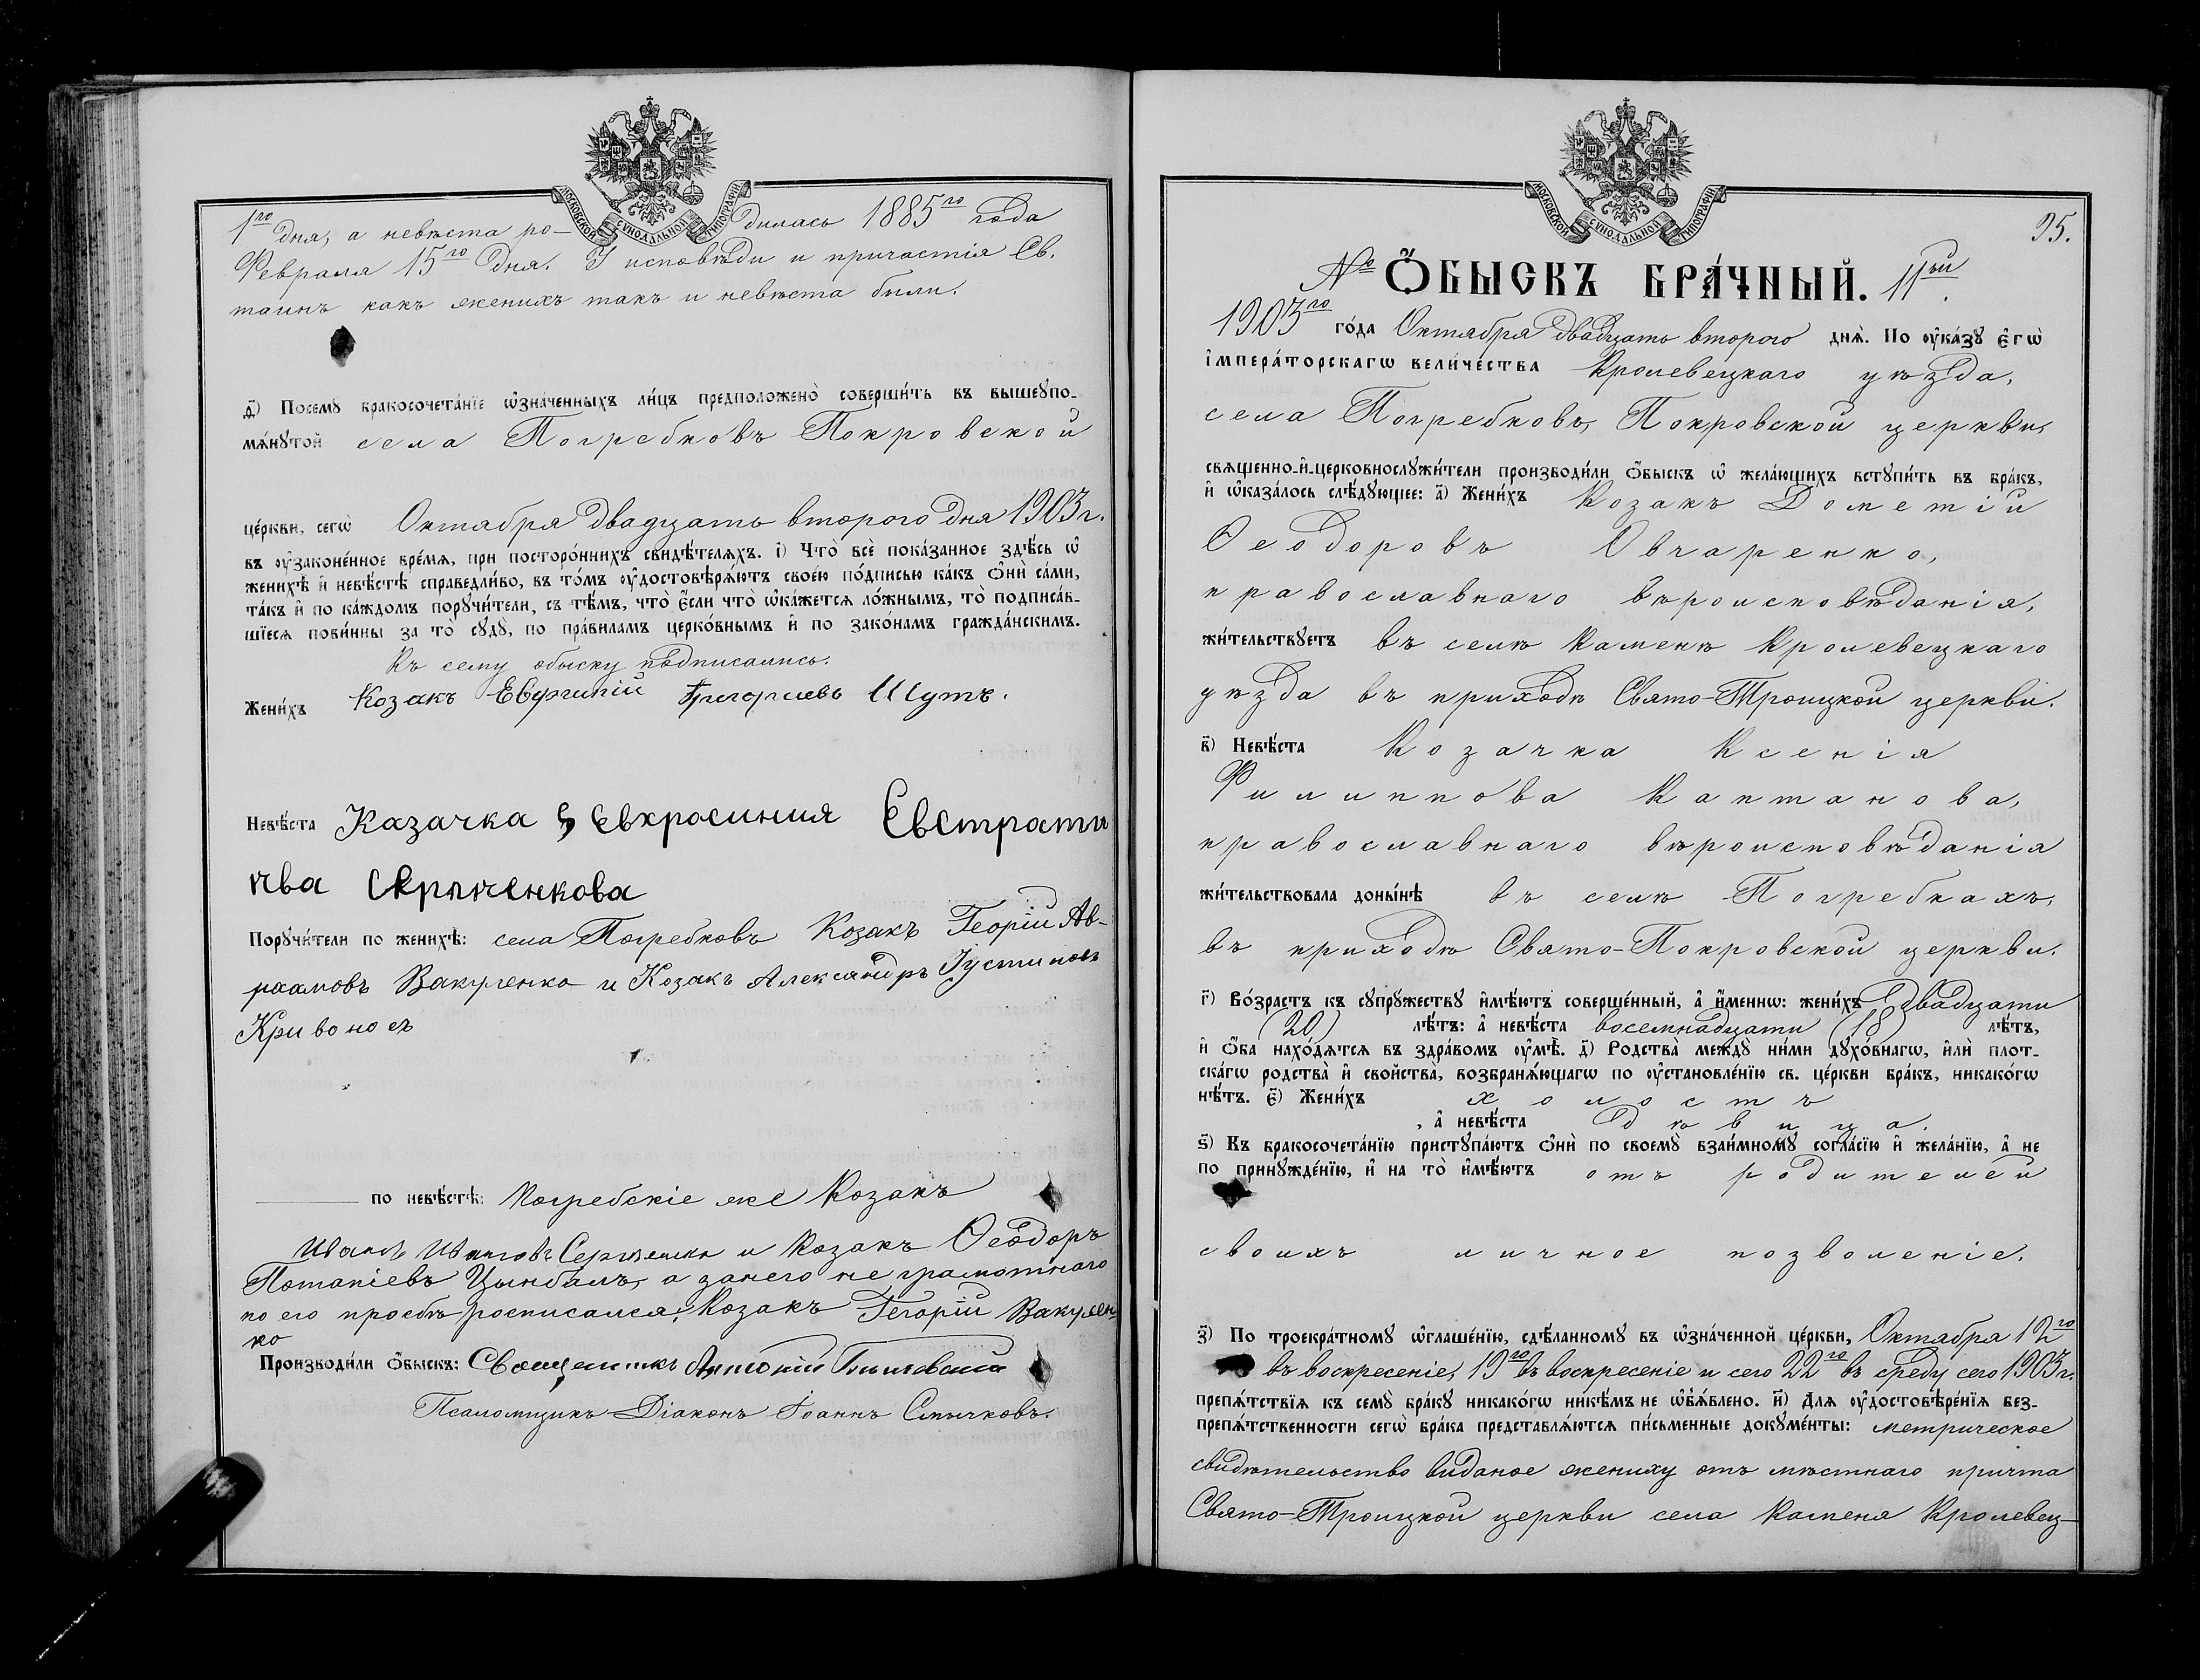 МОСКОВСКОЙ СУНОДАЛЬНОЙ ТИПОГРАФІИ
1го дня, а невѣста ро- дилась 1885го года
Февраля 15го дня. У исповѣди и причастія Св.
таинъ какъ женихъ такъ и невѣста были.
д҃) Посемꙋ бракосочета́нїе ѡ҆зна́ченныхъ ли́цъ предположено̀ соверши́ть въ вышеꙋпо-
мѧ́нꙋтой села Погребковъ Покровской
це́ркви, сегѡ̀ Октября двадцать второго дня 1903 г.
въ ᲂу҆законе́нное вре́мя, при посторо́ннихъ свидѣ́телѧхъ. і҃) Что̀ всѐ пока́занное здѣ́сь ѡ҆
женихѣ̀ и҆ невѣ́стѣ справедли́во, въ то́мъ ᲂу҆достовѣрѧ́ютъ свое́ю по́дписью ка́къ ѻ҆нѝ са́ми,
та́къ и҆ по ка́ждомъ порꙋчи́тели, съ тѣ́мъ, что̀ є҆́сли что̀ ѡ҆ка́жетсѧ ло́жнымъ, то̀ подписа́в-
шїесѧ пови́нны за то̀ сꙋдꙋ̀, по пра́виламъ церко́внымъ и҆ по зако́намъ гражда́нскимъ.
Къ сему обыску подписались:
Жени́хъ Козакъ Евѳимій Григориевъ Шутъ.
Невѣ́ста Казачка Евхросиния Евстрати
ева
Порꙋчи́тели по женихѣ̀: села Погребковъ Козакъ Георгій Ав-
раамовъ Вакуленко и Козакъ Александръ Іустиновъ
Кривоносъ
по невѣ́стѣ: Погребскіе же Козакъ
Иванъ Ивановъ Сергѣенко и Козакъ Ѳеодоръ
Потапіевъ Цымбалъ, а за него не грамотнаго
по его просбѣ росписался: Козакъ Георгій Вакулен-
ко
Производи́ли ѻ҆́быскъ: Священникъ Антоній
Псаломщикъ Діаконъ Іоаннъ Смычковъ.
МОСКОВСКОЙ СУНОДАЛЬНОЙ ТИПОГРАФІИ
95.
№ Ѻ҆́БЫСКЪ БРА́ЧНЫЙ. 11ый.
1903го го́да Октября двадцать второго днѧ̀. По ᲂу҆ка́зꙋ є҆гѡ̀
і҆мпера́торскагѡ вели́чества Кролевецкаго уѣзда,
села Погребковъ, Покровской церкви,
свѧщенно-и҆-церковнослꙋжи́тели производи́ли ѻ҆́быскъ ѡ҆ жела́ющихъ встꙋпи́ть въ бра́къ,
и҆ ѡ҆каза́лось слѣ́дꙋющее: а҃) Жени́хъ Козакъ Дометій
Ѳеодоровъ Овчаренко,
православнаго вѣроисповѣданія,
жи́тельствꙋетъ въ селѣ Каменѣ Кролевецкаго
уѣзда въ приходѣ Свято-Троицкой церкви.
в҃) Невѣ́ста Козачка Ксенія
Филиппова Каптанова,
православнаго вѣроисповѣданія
жи́тельствовала доны́нѣ въ селѣ Погребкахъ,
въ приходѣ Свято-Покровской церкви.
г҃) Во́зрастъ къ сꙋпрꙋ́жествꙋ и҆мѣ́ютъ соверше́нный, а҆ и҆́меннѡ: жени́хъ двадцати
(20) лѣ́тъ: а҆ невѣ́ста восемнадцати (18) лѣ́тъ,
и҆ ѻ҆́ба нахо́дѧтсѧ въ здра́вомъ ᲂу҆мѣ̀. д҃) Родства̀ междꙋ̀ ни́ми дꙋхо́внагѡ, и҆лѝ плот-
ска́гѡ родства̀ и҆ свойства̀, возбранѧ́ющагѡ по ᲂу҆становле́нїю св. це́ркви бра́къ, никако́гѡ
нѣ́тъ. є҃) Жени́хъ холостъ
, а҆ невѣ́ста дѣвица.
ѕ҃) Къ бракосочета́нїю пристꙋпа́ютъ ѻ҆нѝ по своемꙋ̀ взаи́мномꙋ согла́сїю и҆ жела́нїю, а҆ не
по принꙋжде́нїю, и҆ на то̀ и҆мѣ́ютъ отъ родителей
своихъ личное позволеніе.
з҃) По троекра́тномꙋ ѡ҆глаше́нїю, сдѣ́ланномꙋ въ ѡ҆зна́ченной це́ркви, Октября 12го
въ воскресеніе, 19го въ воскресеніе и сего 22го въ среду сего 1903 г.
препѧ́тствїѧ къ семꙋ̀ бра́кꙋ никако́гѡ никѣ́мъ не ѡ҆б̾ѧ́влено. и҃) Для ᲂу҆достовѣре́нїѧ без-
препѧ́тственности сегѡ̀ бра́ка представлѧ́ютсѧ пи́сьменные докꙋме́нты: метрическое
свидѣтельство виданое жениху отъ мѣстнаго причта
Свято-Троицкой церкви села Каменя Кролевец-